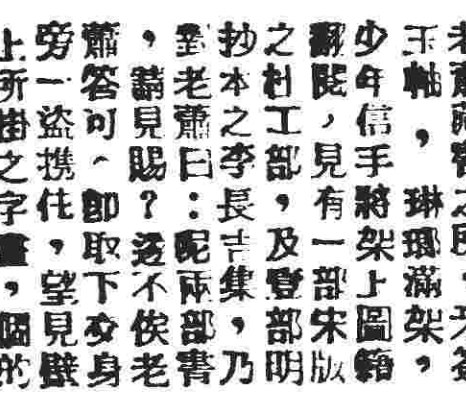 老蕭藏書之
玉軸，琳瑯滿架，
少年信手將架上圖籍
翻閱，見有一部宋版
之杜工部，及壹部明
抄本之李長吉集，乃
對老蕭曰：呢兩部書
，請見賜？遂不俟老
蕭答可，即取下交身
旁一盜携住，望見壁
上所掛之字畫，個的